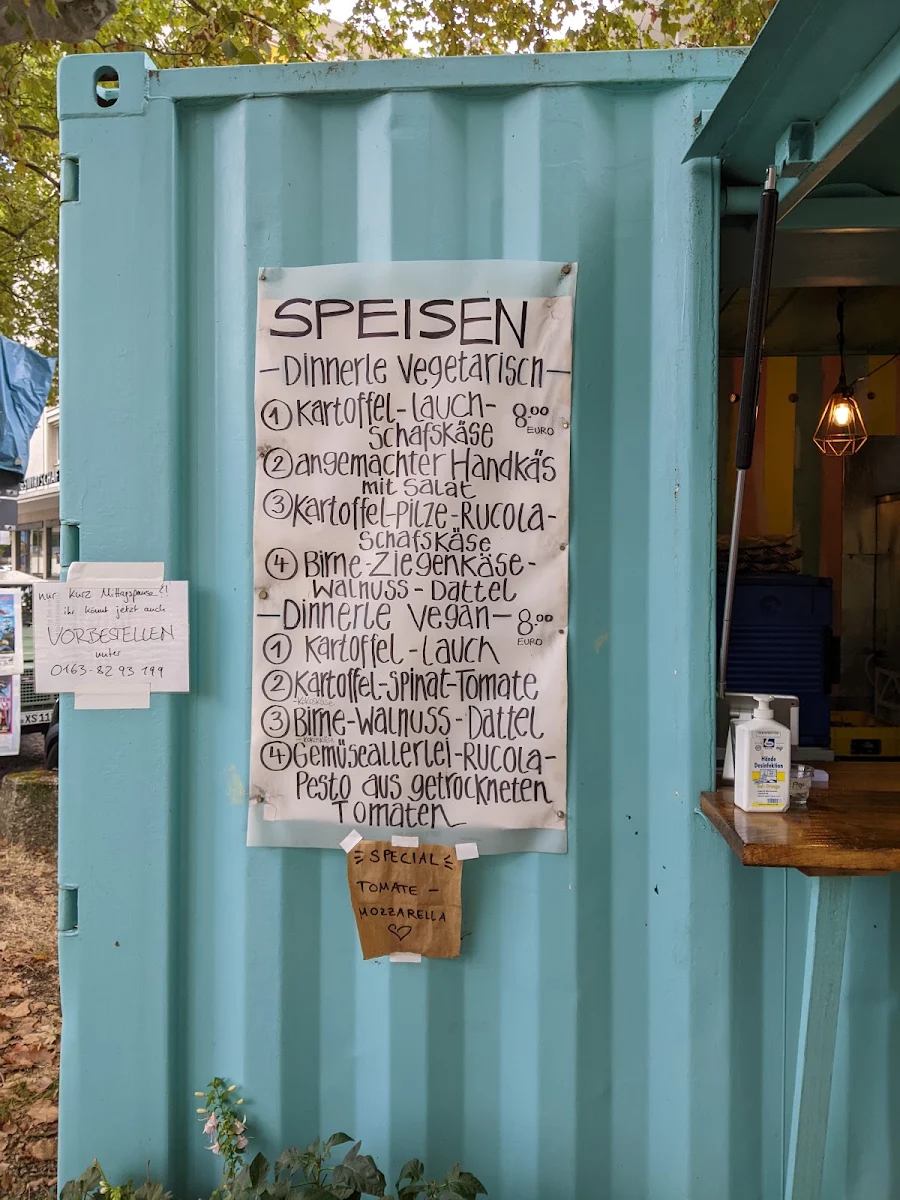 SPEISEN
—Dinnerle vegetarisch—
① Kartoffel-Lauch- 8.00
Schafskäse EURO
② angemachter Handkäs
mit Salat
③ Kartoffel-Pilze-Rucola-
Schafskäse
④ Birne-Ziegenkäse-
Walnuss-Dattel
—Dinnerle vegan— 8.00
EURO
① Kartoffel-Lauch
② Kartoffel-Spinat-Tomate
③ Birne-Walnuss-Dattel
④ Gemüseallerlei-Rucola-
Pesto aus getrockneten
Tomaten
SPECIAL
TOMATE -
MOZZARELLA
♡
nur kurz Mittagspause!!
ihr könnt jetzt auch
VORBESTELLEN
unter
0163-82 93 199
Hände
Desinfektion
XS 11